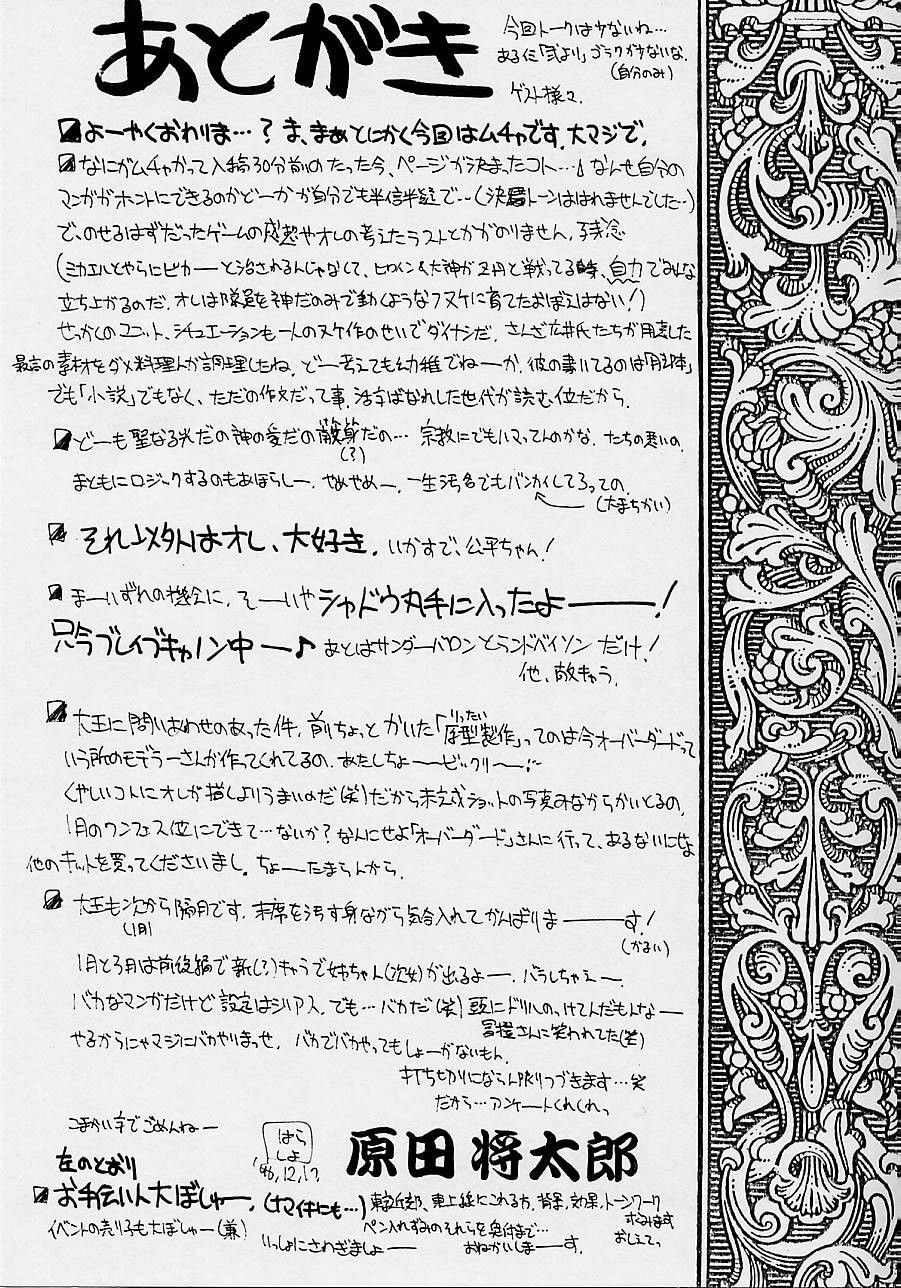 あとがき
今回トークは少ないね…
あるに「弐より」ゴラクが少ないな.
(自分のみ)
ゲスト様々.
よーやくおわりま…？ま、まあとにかく今回はムチャです.大マジで.
なにがムチャかって入稿30分前のたった今、ページが決まったコト…なんせ自分の
マンガがホントにできるのかどーかが自分でも半信半疑で…(決局トーンははれませんでした…)
で、のせるはずだったゲームの感想やオレの考えたラストとかがのりません.残念
(ミカエルとやらにピカーーと治されるんじゃなくて、ヒロイン&大神が2円と戦ってる時、自力でみんな
立ち上がるのだ.オレは隊員を神だのみで動くようなフヌケに育てたおぼえはない！)
せっかくのユニット、シチュエーションも一人のヌケ作のせいでダイナシだ.さんざ広井氏たちが用意した
最高の素材をダメ料理人が調理したね.どー考えても幼稚でねーか.彼の書いてるのは
でも「小説」でもなく、ただの作文だって事.活字ばなれした世代が読む位だから.
どーも聖なる光だの神の愛だの
(?)
だの…宗教にでもハマってんのかな.たちの悪いの.
まともにロジックするのもあほらしー.やめやめー.一生汚名でもバンカイしてろっての.
(大まちがい)
それ以外はオレ、大好き.いかすで、公平ちゃん！
まーいずれの機会に、そーいやシャドウ丸手に入ったよーーー！
只今ブレイブキャノン中ー♪あとはサンダーバロンとランドバイソンだけ！
他、敵キャラ.
大王に問いあわせのあった件.前ちょっとかいた「原型製作」ってのは今オーバーダードって
りったい
いう所のモデラーさんが作ってくれてるの.あたしちょーービックリー
くやしいコトにオレが描くよりうまいのだ(笑)だから未完成ショットの写真みながらかいとるの.
1月のワンフェス位にできて…ないか？なんにせよ「オーバーダード」さんに行って、あるないにせよ
他のキットを買ってくださいまし.ちょーたまらんから.
大王も次から隔月です.末席を汚す身ながら気合入れてがんばりまーーーす！
(1月)
(かるい)
1月と3月は前後編で新(?)キャラで姉ちゃん(次女)が出るよー.バラしちゃえー
バカなマンガだけど設定はシリアス.でも…バカだ(笑)頭にドリルのっけてんだもんなー
さんに笑われてた(笑)
やるからにゃマジにバカやりまっせ.バカでバカやってもしょーがないもん.
打ち切りにならん限りつづきます…笑
だから…アンケートくれくれっ
こまかい字でごめんねー
はら
しょ
'96.12.17
原田将太郎
左のとおり
お手伝い人大ぼしゅー.(ナマイキにも…)東京近郊、東上線にこれる方.背景.効果.トーンワーク
イベントの売り子も大ぼしゅー(兼)
ペン入れずみのそれらを受付まで…
いっしょにさわぎましょーー
おねがいしまーす.
おしえてっ